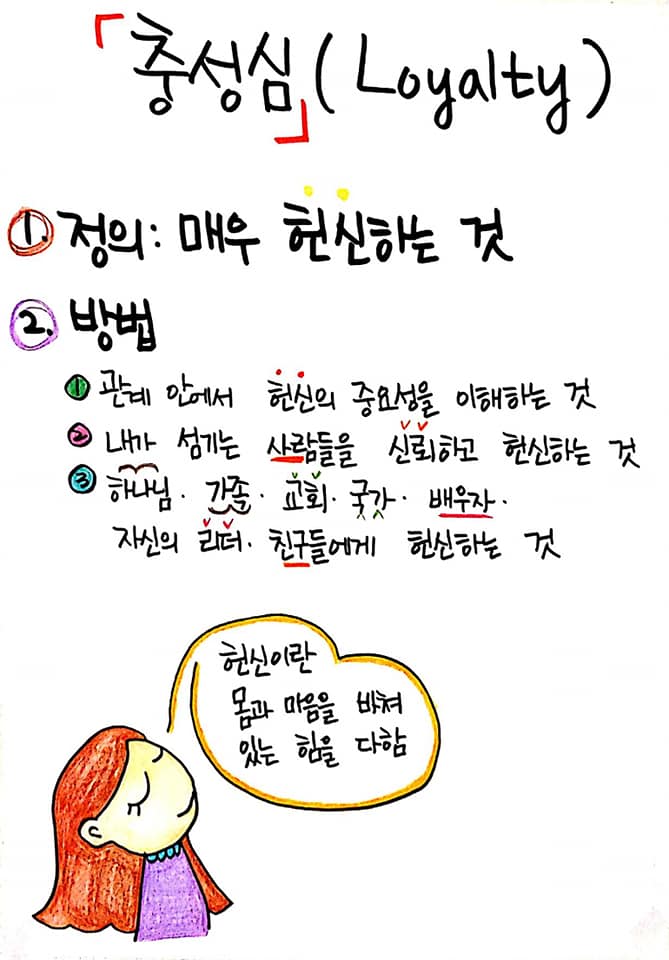 「충성심」(Loyalty)
1. 정의: 매우 헌신하는 것
2. 방법
① 관계 안에서 헌신의 중요성을 이해하는 것
② 내가 섬기는 사람들을 신뢰하고 헌신하는 것
③ 하나님. 가족. 교회. 국가. 배우자.
자신의 리더. 친구들에게 헌신하는 것
헌신이란
몸과 마음을 바쳐
있는 힘을 다함